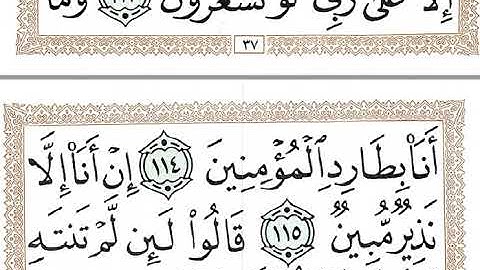 إِلَّا عَلَىٰ رَبِّي لَوْ تَشْعُرُونَ ١١٣ وَمَا
٣٧
أَنَا۠ بِطَارِدِ ٱلْمُؤْمِنِينَ ١١٤ إِنْ أَنَا۠ إِلَّا
نَذِيرٌ مُّبِينٌ ١١٥ قَالُوا۟ لَئِن لَّمْ تَنتَهِ